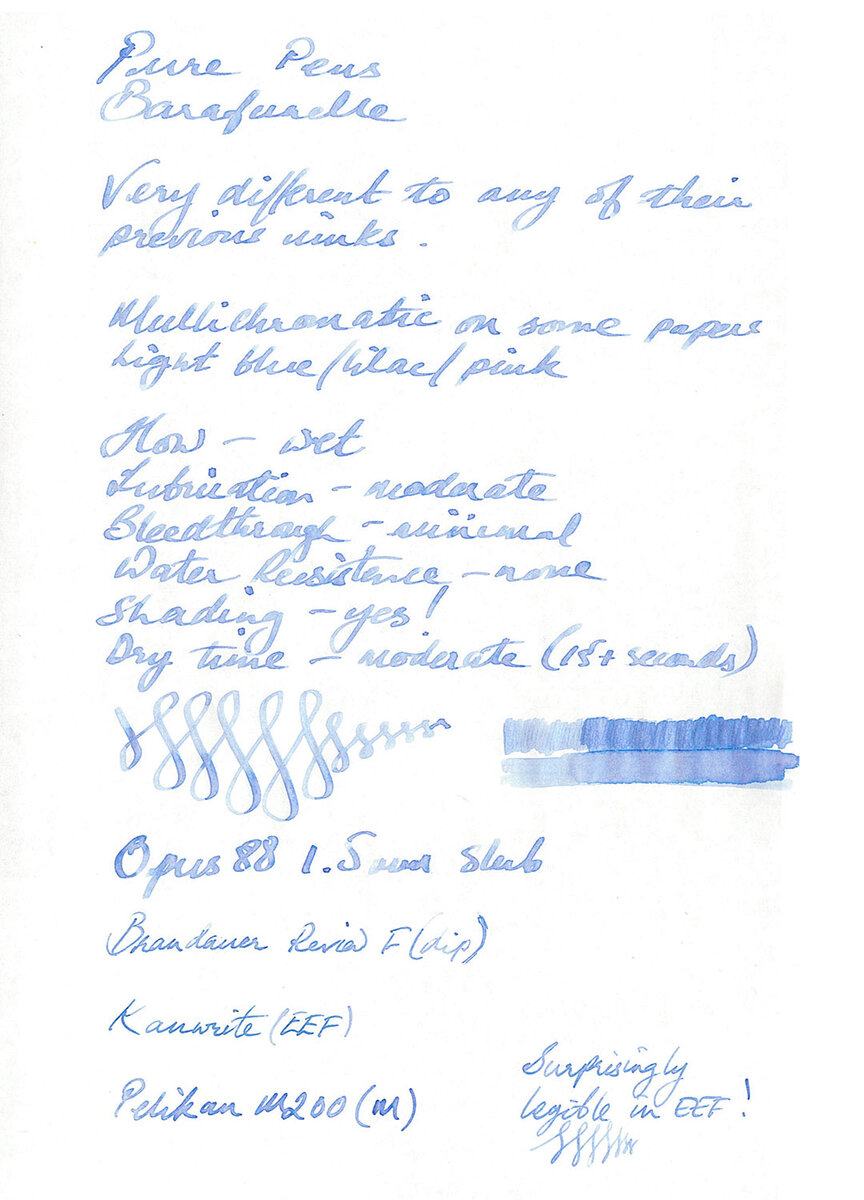 Pure Pens
Barafundle
Very different to any of their
previous inks.
Multichromatic on some papers
Light blue/lilac/pink
Flow – wet
Lubrication – moderate
Bleedthrough – minimal
Water Resistence – none
Shading – yes!
Dry time – moderate (15+ seconds)
Opus 88 1.5mm Stub
Brandauer F (dip)
Kanwrite (EEF)
Pelikan M200 (M)
Surprisingly
legible in EEF!